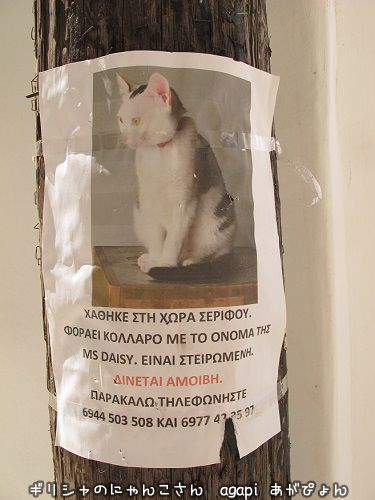 ΧΑΘΗΚΕ ΣΤΗ ΧΩΡΑ ΣΕΡΙΦΟΥ.
ΦΟΡΑΕΙ ΚΟΛΛΑΡΟ ΜΕ ΤΟ ΟΝΟΜΑ ΤΗΣ
MS DAISY. ΕΙΝΑΙ ΣΤΕΙΡΩΜΕΝΗ.
ΔΙΝΕΤΑΙ ΑΜΟΙΒΗ.
ΠΑΡΑΚΑΛΩ ΤΗΛΕΦΩΝΗΣΤΕ
6944 503 508 ΚΑΙ 6977
ギリシャのにゃんこさん agapi あがぴょん